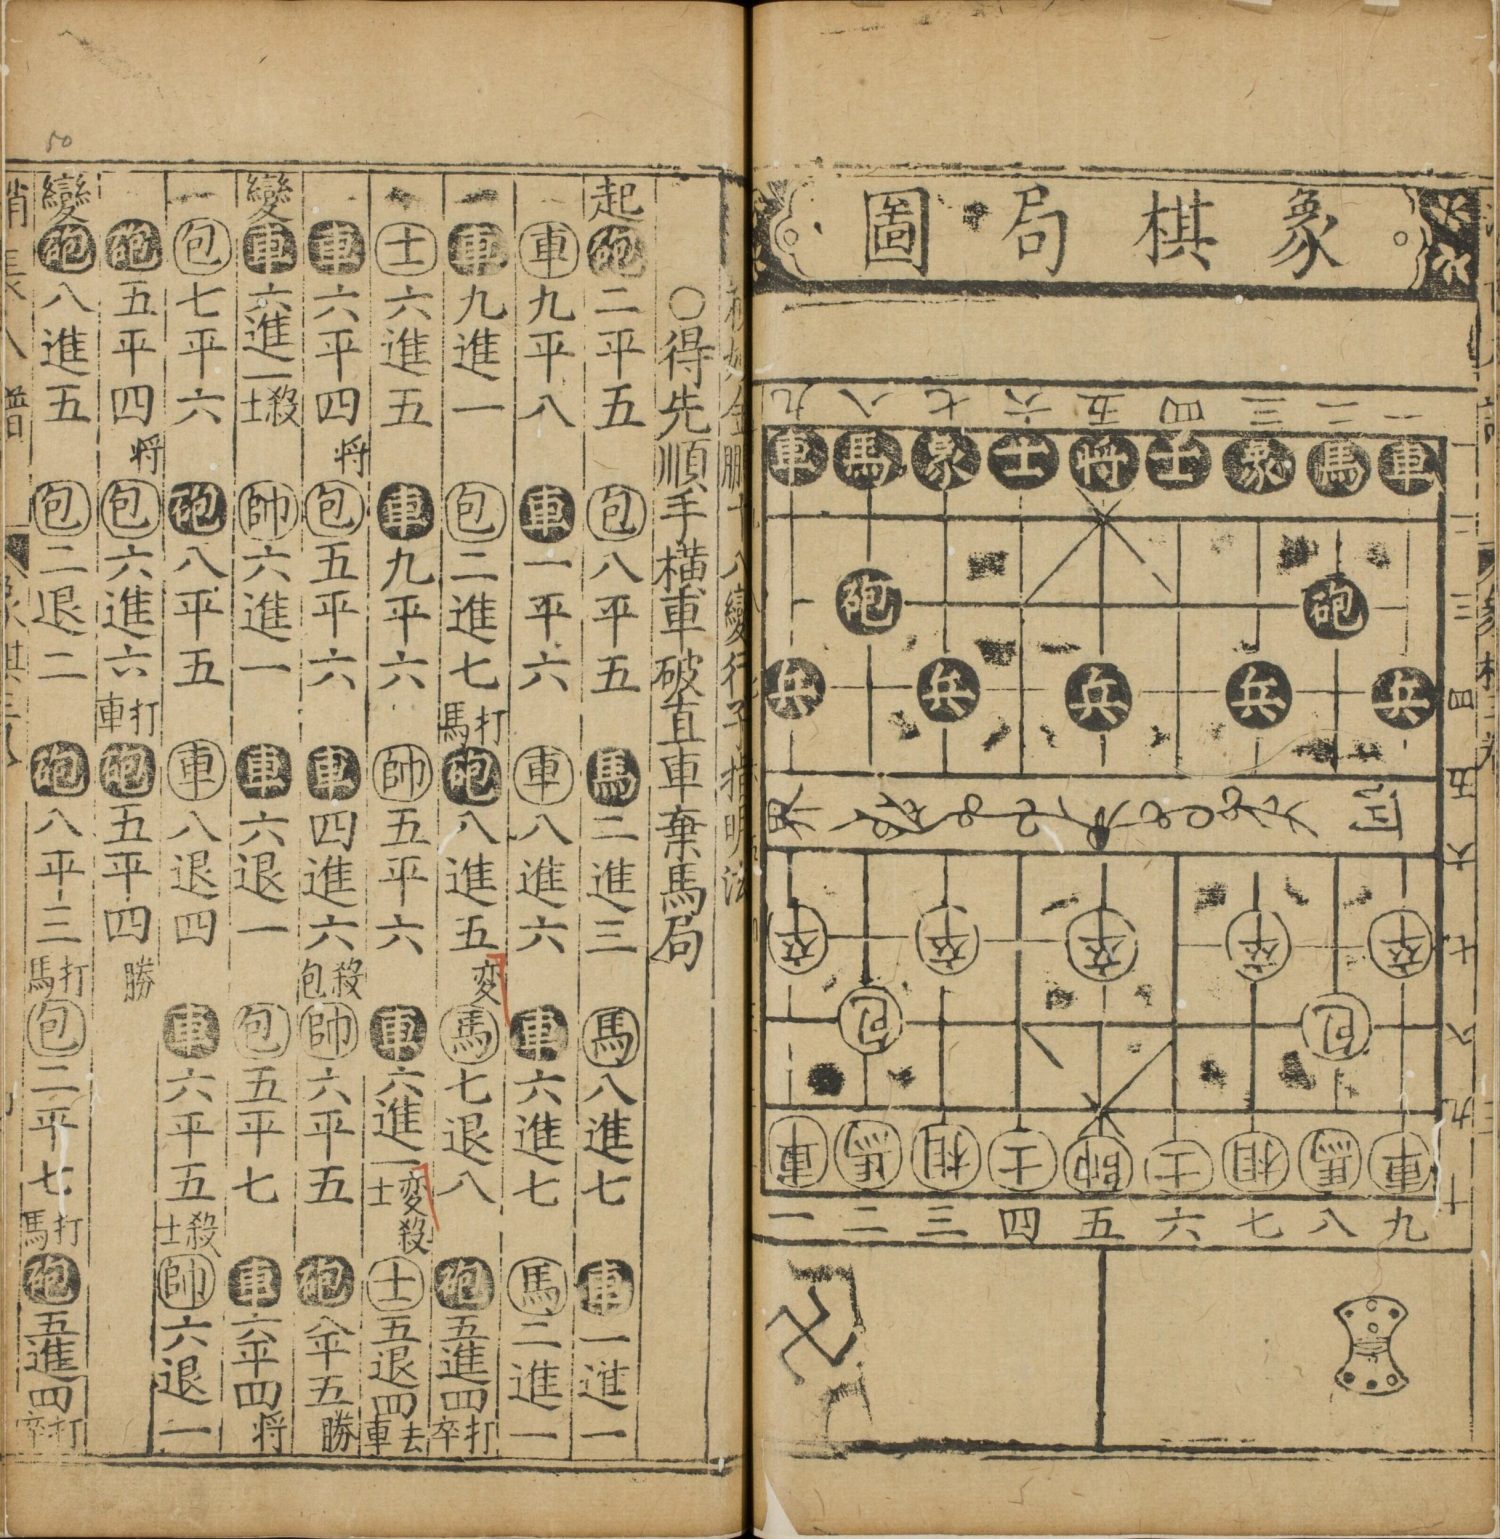 象棋局圖
一二三四五六七八九
車馬象士将士象馬車
砲砲
兵兵兵兵兵
卒卒卒卒卒
包包
車馬相士帥士相馬車
九八七六五四三二一
二三四五六七八九十
金鵬十八變行子指明法
〇得先順手橫車破直車棄馬局
起砲二平五 包八平五 馬二進三 馬八進七 車一進一
車九平八 車一平六 車八進六 車六進七 馬二進一
一車九進一 包二進七打馬 砲八進五変 馬七退八 砲五進四打卒
士六進五 車九平六 帥五平六 車六進一変殺士 士五退四去車
車六平四将 包五平六 車四進六殺包 帥六平五 砲八平五勝
變車六進一殺士 帥六進一 車六退一 包五平七 車六平四将
一包七平六 砲八平五 車八退四 車六平五殺士 帥六退一
砲五平四将 包六進六打車 砲五平四勝
變砲八進五 包二退二 砲八平三打馬 包二平七打馬 砲五進四打卒
50